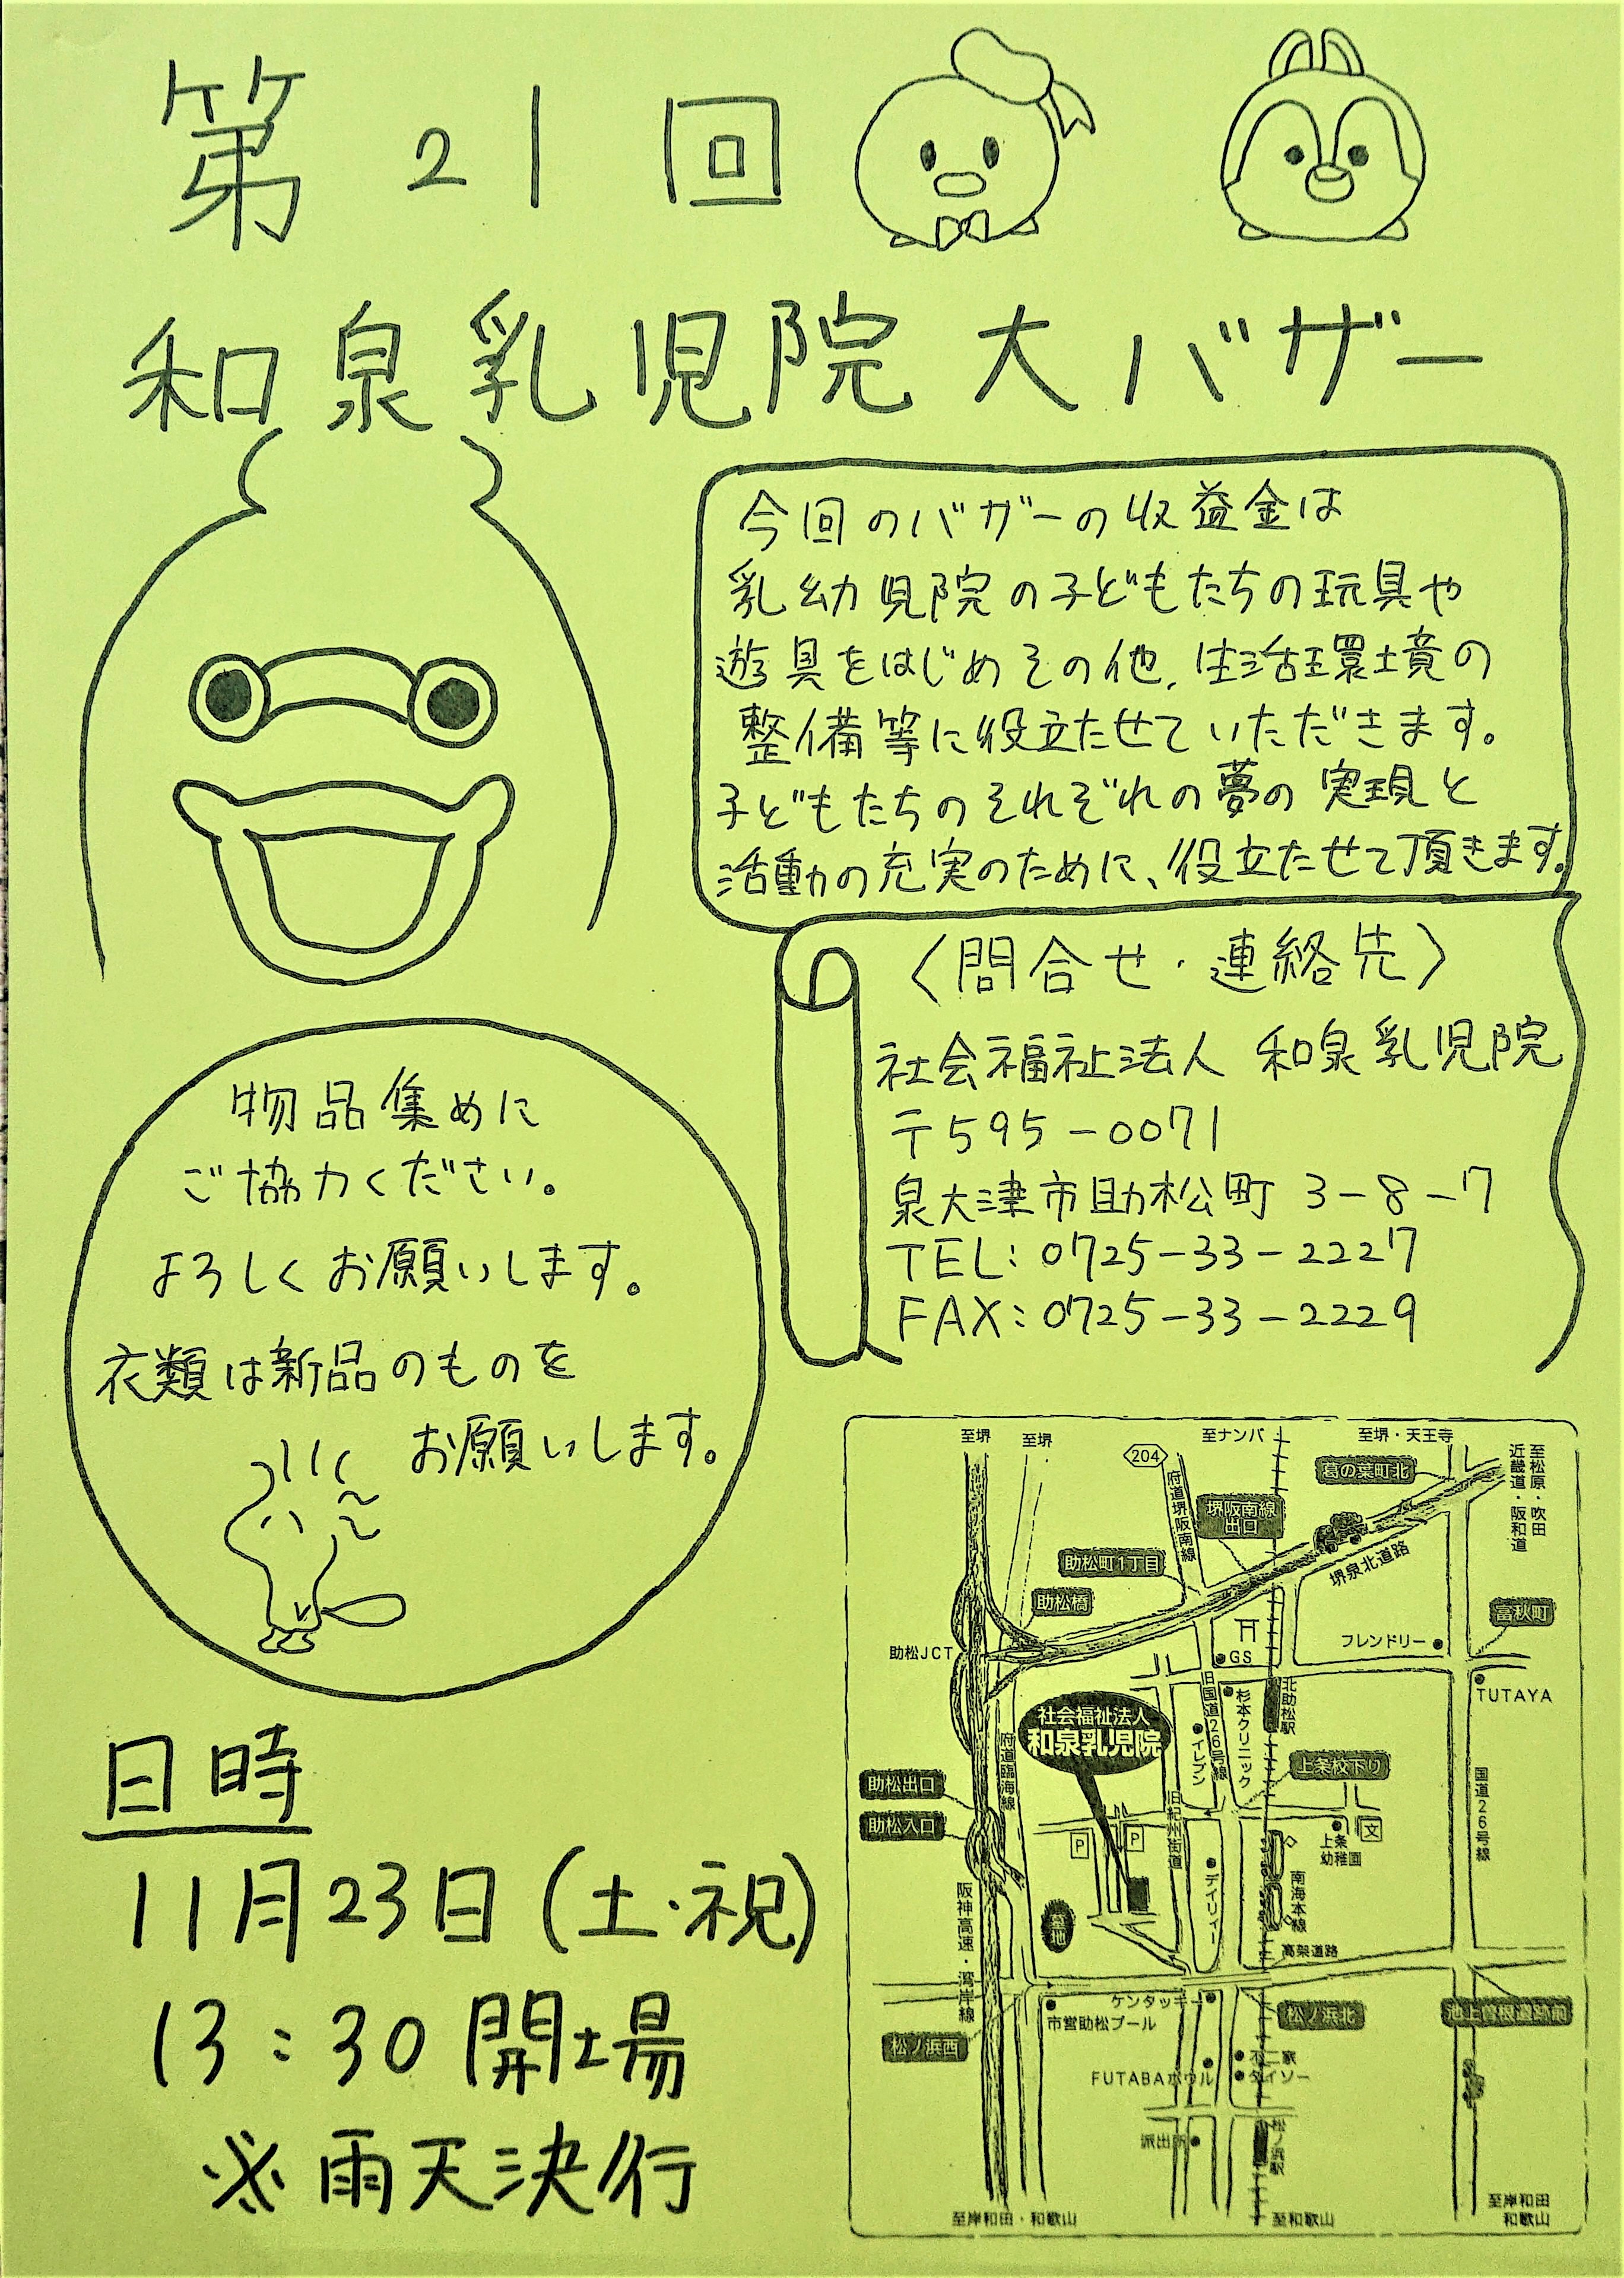 第21回
和泉乳児院大バザー
今回のバザーの収益金は
乳幼児院の子どもたちの玩具や
遊具をはじめその他、生活環境の
整備等に役立たせていただきます。
子どもたちのそれぞれの夢の実現と
活動の充実のために、役立たせて頂きます。
〈問合せ・連絡先〉
社会福祉法人 和泉乳児院
〒595-0071
泉大津市助松町 3-8-7
TEL:0725-33-2227
FAX:0725-33-2229
物品集めに
ご協力ください。
よろしくお願いします。
衣類は新品のものを
お願いします。
日時
11月23日(土・祝)
13:30開場
※雨天決行
至堺
至堺
204
府道堺阪南線
至ナンバ
至堺・天王寺
至松原・吹田
近畿道・阪和道
葛の葉町北
堺阪南線
出口
助松町1丁目
助松橋
堺泉北道路
富秋町
フレンドリー
助松JCT
GS
TUTAYA
北助松駅
旧国道26号線
杉本クリニック
イレブン
社会福祉法人
和泉乳児院
府道臨海線
上条校下り
助松出口
助松入口
旧紀州街道
国道26号線
P
P
文
上条
幼稚園
デイリィー
南海本線
墓地
阪神高速・湾岸線
高架道路
ケンタッキー
市営助松プール
松ノ浜北
池上曽根遺跡前
松ノ浜西
不二家
ダイソー
FUTABAボウル
派出所
松ノ浜駅
至岸和田・和歌山
至和歌山
至岸和田
和歌山